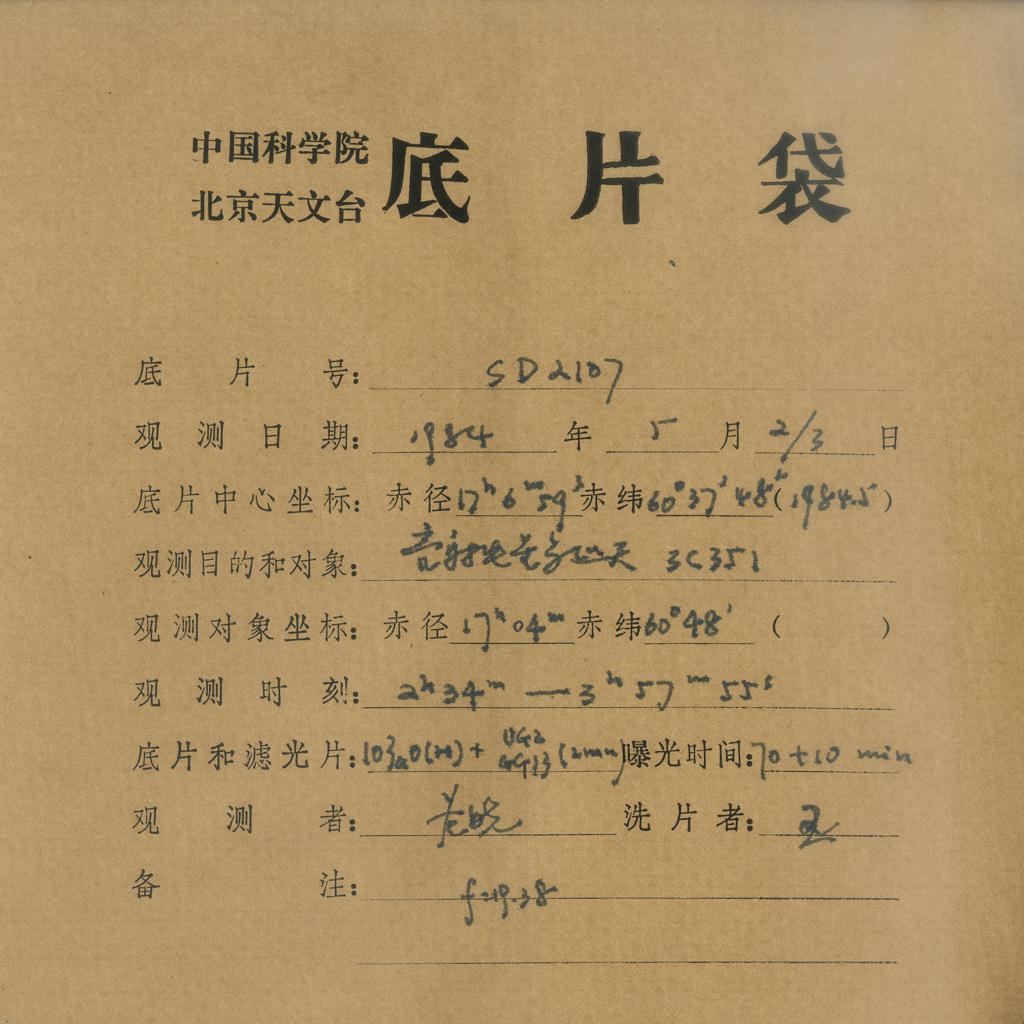 中国科学院
北京天文台
底片袋
底片号: SD2107
观测日期: 1984 年 5 月 2/3 日
底片中心坐标: 赤径 17h 6m 59s 赤纬 60° 37' 48" (1984.5)
观测目的和对象: 3C351
观测对象坐标: 赤径 17h 04m 赤纬 60° 48' ( )
观测时刻: 2h 34m — 3h 57m 55s
底片和滤光片: 103aO(24) + UG2 GG13 (2mm) 曝光时间: 70+10 min
观测者: 洗片者: 王
备注: f=19.38